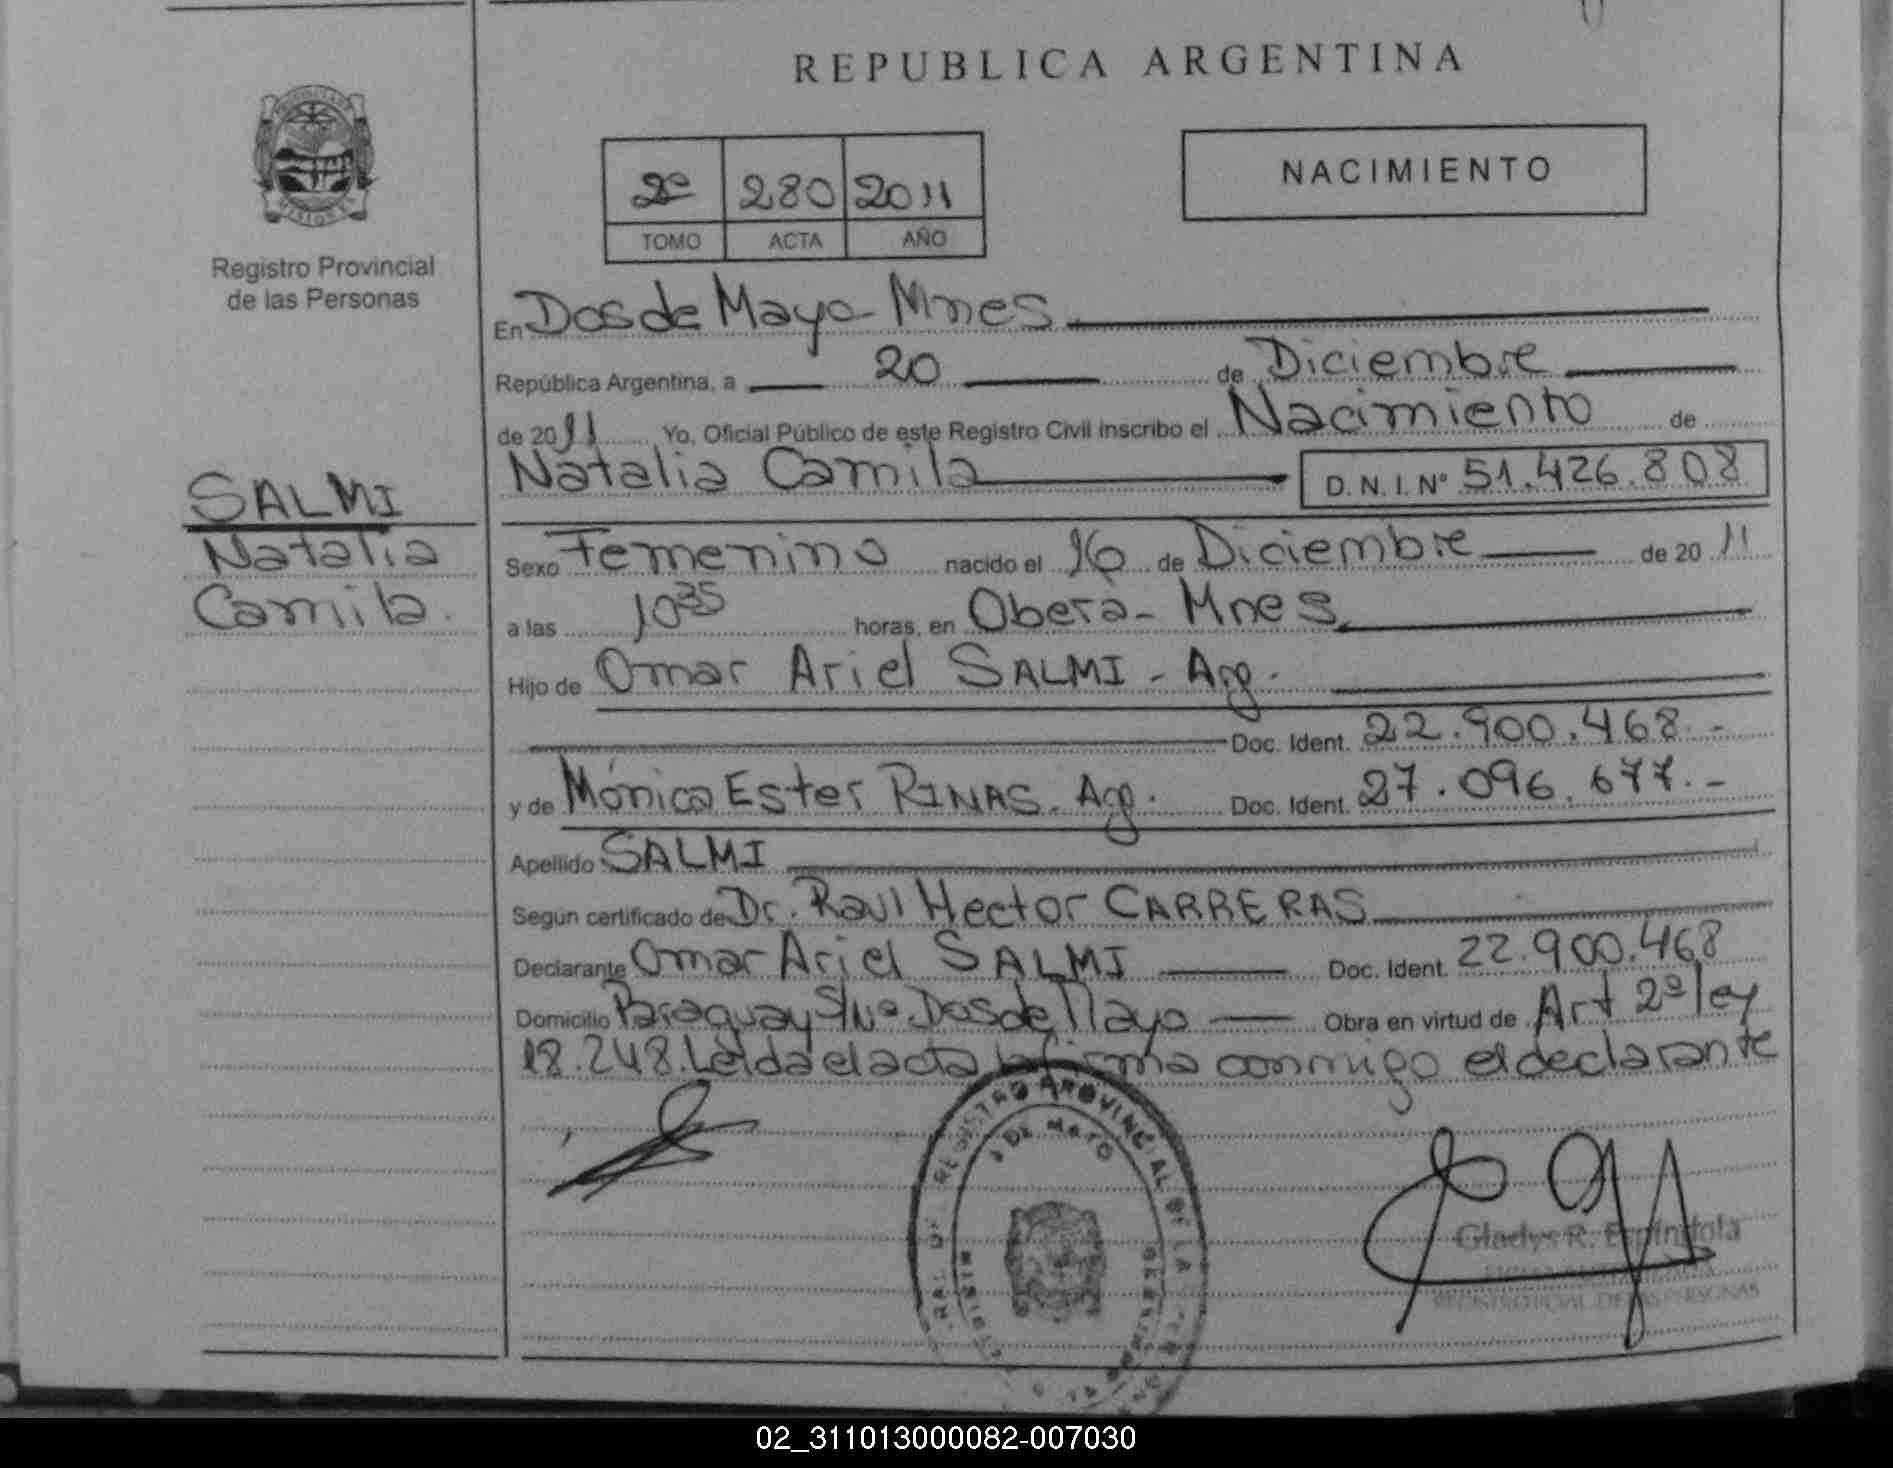 REPUBLICA ARGENTINA
NACIMIENTO
2º 280 2011
TOMO ACTA AÑO
MISIONES
Registro Provincial
de las Personas
En Dos de Mayo - Mnes
República Argentina, a 20 de Diciembre
de 2011 Yo, Oficial Público de este Registro Civil inscribo el Nacimiento de
Natalia Camila D.N.I. Nº 51.426.808
SALMI
Natalia
Camila.
Sexo Femenino nacido el 16 de Diciembre de 2011
a las 10 35 horas, en Oberá - Mnes.
Hijo de Omar Ariel SALMI - Arg.
Doc. Ident. 22.900.468.-
y de Mónica Ester RINAS. Arg. Doc. Ident. 27.096.677.-
Apellido SALMI
Según certificado de Dr. Raul Hector CARRERAS
Declarante Omar Ariel SALMI Doc. Ident. 22.900.468
Domicilio Paraguay S/Nº Dos de Mayo Obra en virtud de Art 2º ley
18.248. Leída el acta la firma conmigo el declarante
REGISTRO PROVINCIAL DE LAS PERSONAS
DE MAYO
Gladys R. Espíndola
REGISTRO PCIAL. DE LAS PERSONAS
02_311013000082-007030